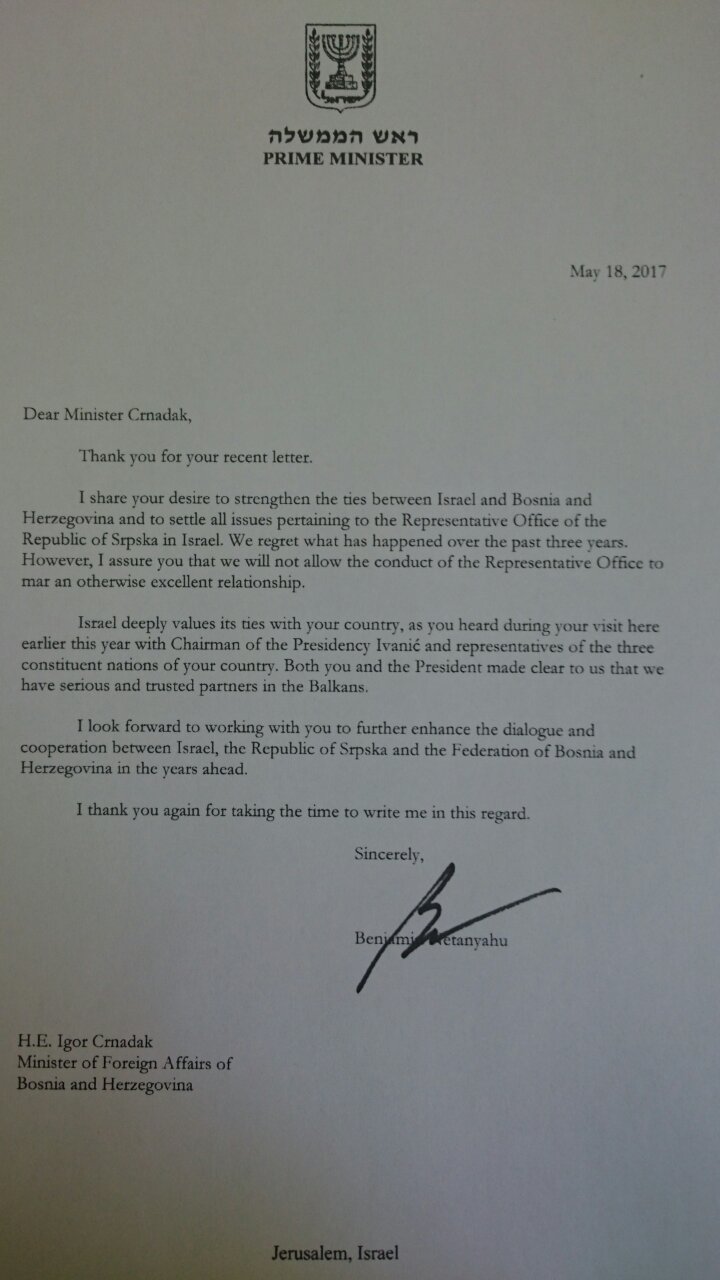 ישראל
ראש הממשלה
PRIME MINISTER
May 18, 2017
Dear Minister Crnadak,
Thank you for your recent letter.
I share your desire to strengthen the ties between Israel and Bosnia and
Herzegovina and to settle all issues pertaining to the Representative Office of the
Republic of Srpska in Israel. We regret what has happened over the past three years.
However, I assure you that we will not allow the conduct of the Representative Office to
mar an otherwise excellent relationship.
Israel deeply values its ties with your country, as you heard during your visit here
earlier this year with Chairman of the Presidency Ivanić and representatives of the three
constituent nations of your country. Both you and the President made clear to us that we
have serious and trusted partners in the Balkans.
I look forward to working with you to further enhance the dialogue and
cooperation between Israel, the Republic of Srpska and the Federation of Bosnia and
Herzegovina in the years ahead.
I thank you again for taking the time to write me in this regard.
Sincerely,
Benjamin Netanyahu
H.E. Igor Crnadak
Minister of Foreign Affairs of
Bosnia and Herzegovina
Jerusalem, Israel